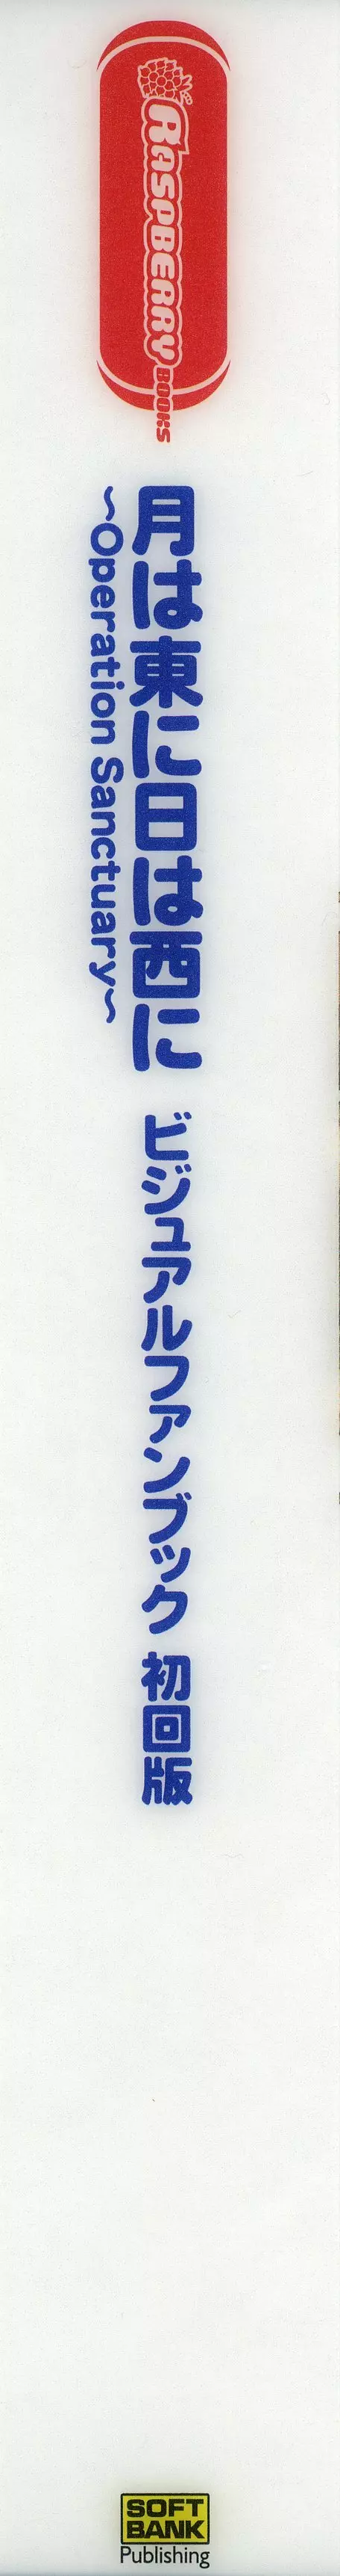 RASPBERRY BOOKS
月は東に日は西に
～Operation Sanctuary～
ビジュアルファンブック 初回版
SOFT
BANK
Publishing